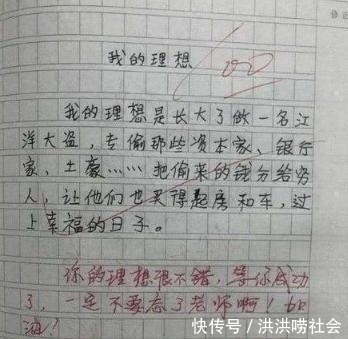 我的理想
我的理想是长大了做一名江
洋大盗，专偷那些资本家、银行
家、土豪……把偷来的钱分给穷
人，让他们也买得起房和车，过
上幸福的日子。
你的理想很不错，等你成功
了，一定不要忘了老师啊！
快传号/洪洪唠社会